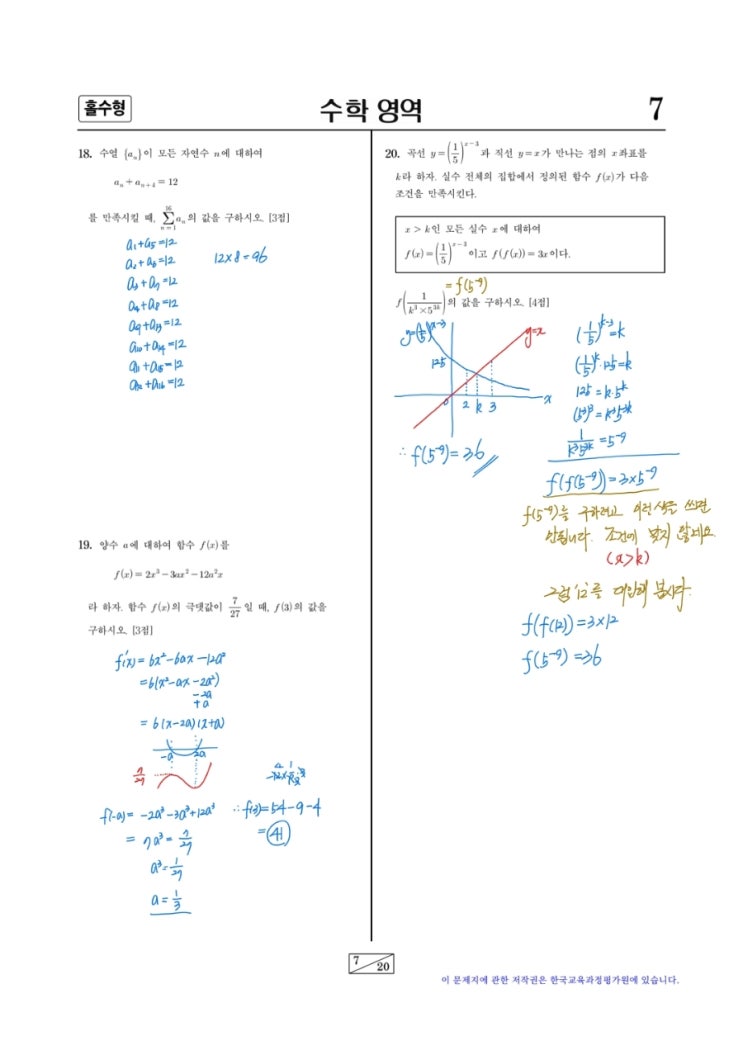 홀수형
수학 영역
7
18. 수열 {aₙ}이 모든 자연수 n에 대하여
aₙ + aₙ₊₄ = 12
를 만족시킬 때, \sum_{n=1}^{16} aₙ의 값을 구하시오. [3점]
a₁+a₅=12
a₂+a₆=12
a₃+a₇=12
a₄+a₈=12
a₉+a₁₃=12
a₁₀+a₁₄=12
a₁₁+a₁₅=12
a₁₂+a₁₆=12
12×8=96
19. 양수 a에 대하여 함수 f(x)를
f(x) = 2x³ − 3ax² − 12a²x
라 하자. 함수 f(x)의 극댓값이 7/27 일 때, f(3)의 값을
구하시오. [3점]
f'(x) = 6x²−6ax−12a²
=6(x²−ax−2a²)
−2a
+a
= 6(x−2a)(x+a)
−a 2a
7/27
f(−a) = −2a³−3a³+12a³
= 7a³ = 7/27
a³ = 1/27
a = 1/3
∴ f(3)=54−9−4
= 41
20. 곡선 y=(1/5)^{x−3}과 직선 y=x가 만나는 점의 x좌표를
k라 하자. 실수 전체의 집합에서 정의된 함수 f(x)가 다음
조건을 만족시킨다.
x > k인 모든 실수 x에 대하여
f(x)=(1/5)^{x−3}이고 f(f(x))=3x이다.
f(1/(k³×5^{3k}))의 값을 구하시오. [4점]
= f(5⁻⁹)
y=(1/5)^{x−3}
y=x
125
0 2 k 3 x
∴ f(5⁻⁹)=36
(1/5)^{k−3}=k
(1/5)^k·125=k
125=k·5^k
(5³)³=k³5^{3k}
1/(k³5^{3k}) = 5⁻⁹
f(f(5⁻⁹))=3×5⁻⁹
f(5⁻⁹)를 구하려고 이런 식을 쓰면
안됩니다. 조건에 맞지 않네요
(x>k)
그럼 '12'를 대입해 봅시다.
f(f(12))=3×12
f(5⁻⁹)=36
7
20
이 문제지에 관한 저작권은 한국교육과정평가원에 있습니다.